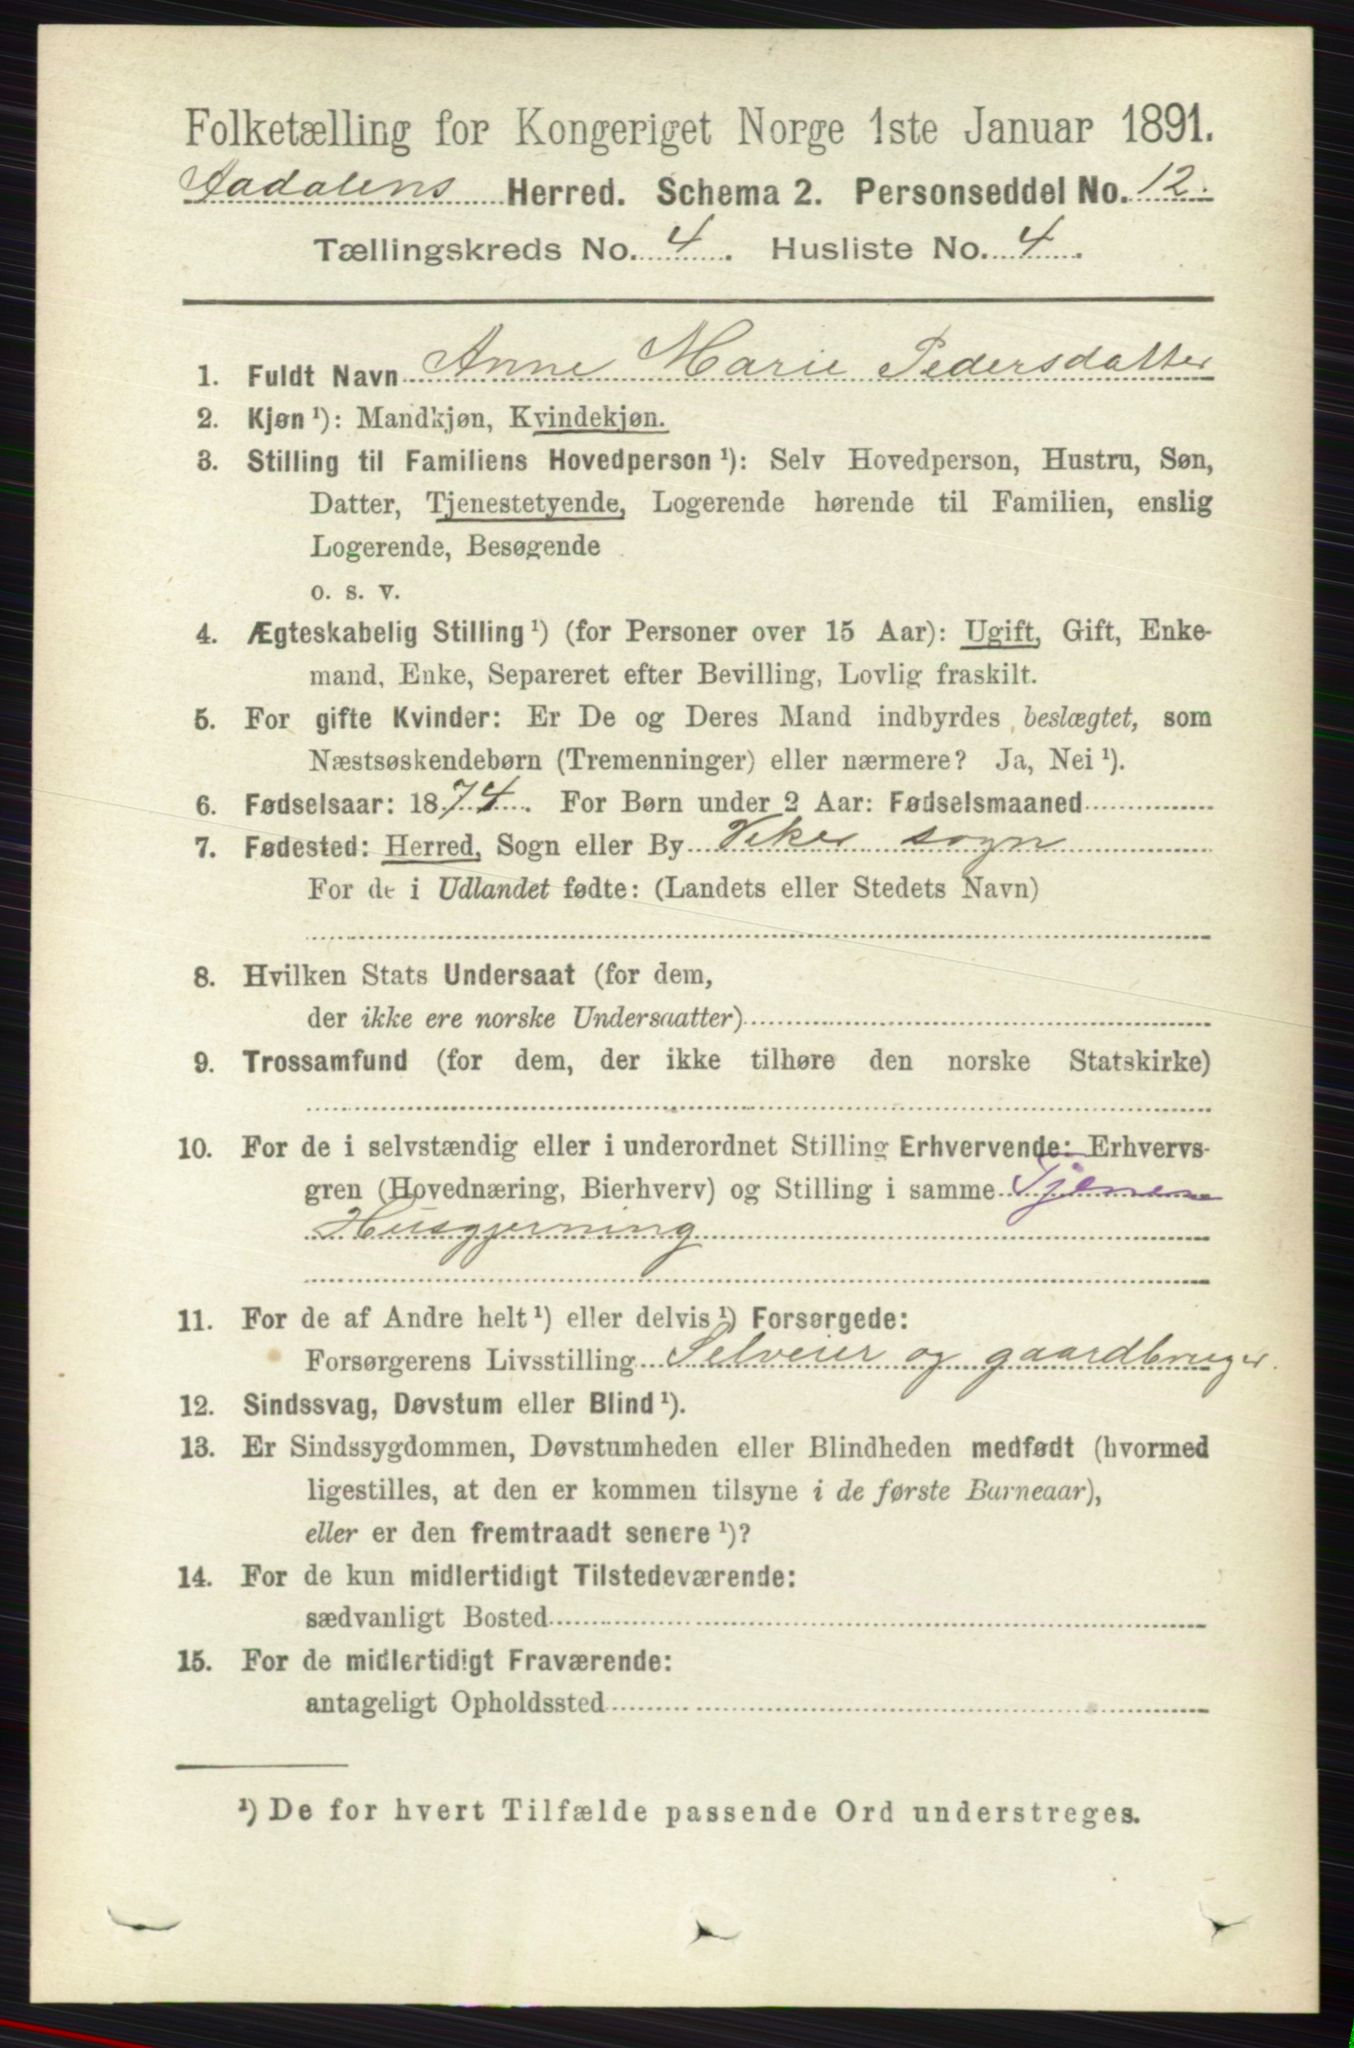 Folketælling for Kongeriget Norge 1ste Januar 1891.
Aadalens Herred. Schema 2. Personseddel No. 12.
Tællingskreds No. 4. Husliste No. 4.
1. Fuldt Navn Anne Marie Pedersdatter
2. Kjøn¹): Mandkjøn, Kvindekjøn.
3. Stilling til Familiens Hovedperson¹): Selv Hovedperson, Hustru, Søn,
Datter, Tjenestetyende, Logerende hørende til Familien, enslig
Logerende, Besøgende
o. s. v.
4. Ægteskabelig Stilling¹) (for Personer over 15 Aar): Ugift, Gift, Enke-
mand, Enke, Separeret efter Bevilling, Lovlig fraskilt.
5. For gifte Kvinder: Er De og Deres Mand indbyrdes beslægtet, som
Næstsøskendebørn (Tremenninger) eller nærmere? Ja, Nei¹).
6. Fødselsaar: 1874. For Børn under 2 Aar: Fødselsmaaned
7. Fødested: Herred, Sogn eller By Vikes sogn
For de i Udlandet fødte: (Landets eller Stedets Navn)
8. Hvilken Stats Undersaat (for dem,
der ikke ere norske Undersaatter)
9. Trossamfund (for dem, der ikke tilhøre den norske Statskirke)
10. For de i selvstændig eller i underordnet Stilling Erhvervende: Erhvervs-
gren (Hovednæring, Bierhverv) og Stilling i samme
Husgjerning
11. For de af Andre helt¹) eller delvis¹) Forsørgede:
Forsørgerens Livsstilling Selveier og gaardbruger.
12. Sindssvag, Døvstum eller Blind¹).
13. Er Sindssygdommen, Døvstumheden eller Blindheden medfødt (hvormed
ligestilles, at den er kommen tilsyne i de første Barneaar),
eller er den fremtraadt senere¹)?
14. For de kun midlertidigt Tilstedeværende:
sædvanligt Bosted
15. For de midlertidigt Fraværende:
antageligt Opholdssted
¹) De for hvert Tilfælde passende Ord understreges.